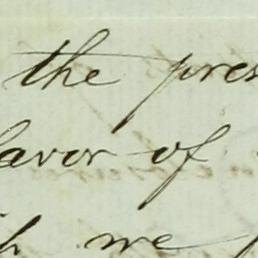 the pres
avor of
we